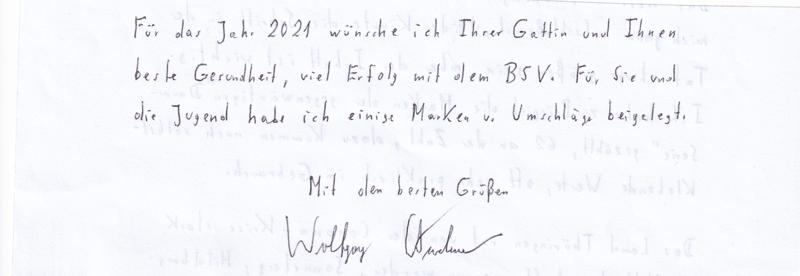 Für das Jahr 2021 wünsche ich Ihrer Gattin und Ihnen
beste Gesundheit, viel Erfolg mit dem BSV. Für Sie und
die Jugend habe ich einige Marken u. Umschläge beigelegt.
Mit den besten Grüßen
Wolfgang